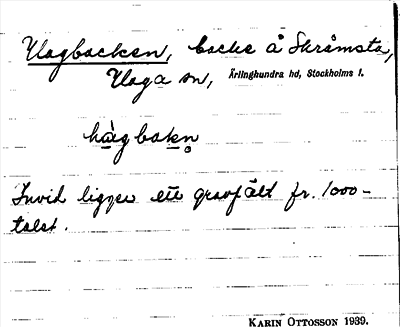 Hagbacken, backe å Skråmsta,
Haga sn, Ärlinghundra hd, Stockholms l.
hàgbakn̥
Invid ligger ett gravfält fr. 1000-
talet.
KARIN OTTOSSON 1939.